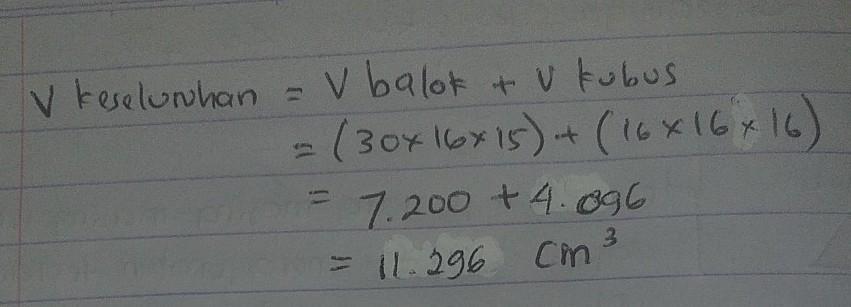 V keseluruhan = V balok + V kubus
= (30x16x15) + (16 x 16 x 16)
= 7.200 + 4.096
= 11.296 cm³